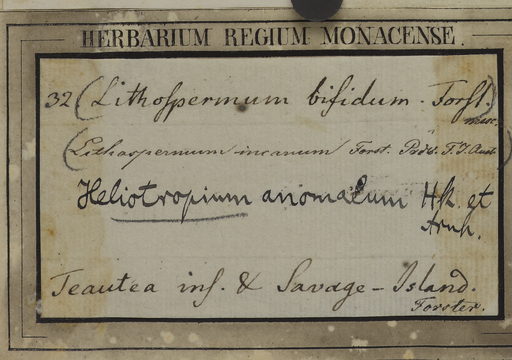 HERBARIUM REGIUM MONACENSE.
32 (Lithospermum bifidum. Forst.)
msc.
(Lithospermum incanum Forst. Prdr. F. I. Aust.
Heliotropium anomalum Hk. et
Arnh.
Teautea ins. & Savage-Island.
Forster.